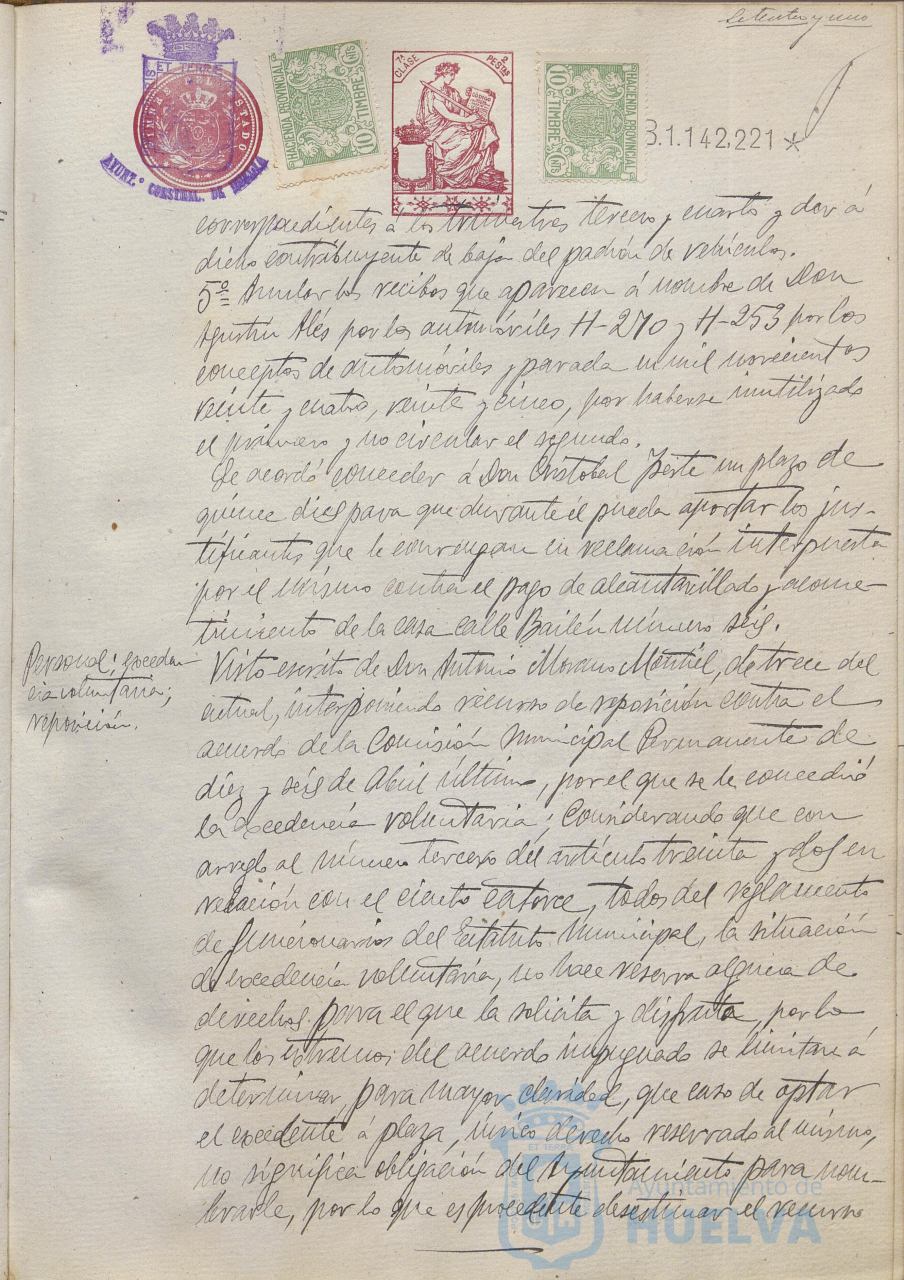 Setenta y uno
HACIENDA PROVINCIAL
TIMBRE
10 CTS
7ª CLASE
2 PESTAS
HACIENDA PROVINCIAL
10 CTS
TIMBRE
TIMBRE DEL ESTADO
AYUNT.º CONSTNAL. DE HUELVA
B.1.142,221 *
correspondientes á los trimestres tercero y cuarto y dar á
dicho contribuyente de baja del padrón de vehículos.
5º Anular los recibos que aparecen á nombre de Don
Agustín Alés por los automóviles H-270 y H-253 por los
conceptos de automóviles y parada un mil novecientos
veinte y cuatro, veinte y cinco, por haberse inutilizado
el primero y no circular el segundo.
Se acordó conceder á Don Cristobal un plazo de
quince dias para que durante él pueda aportar los jus-
tificantes que le convengan en reclamación interpuesta
por el mismo contra el pago de alcantarillado y acome-
timiento de la casa calle Bailén número seis.
Personal; exceden-
cia voluntaria;
reposición.
Visto escrito de Don Antonio Moreno Montiel, de trece del
actual, interponiendo recurso de reposición contra el
acuerdo de la Comisión Municipal Permanente de
diez y seis de Abril último, por el que se le concedió
la excedencia voluntaria; Considerando que con
arreglo al número tercero del artículo treinta y dos en
relación con el ciento catorce, todos del reglamento
de funcionarios del Estatuto Municipal, la situación
de excedencia voluntaria, no hace reserva alguna de
derechos para el que la solicita y disfruta, por lo
que los extremos del acuerdo impugnado se limitan á
determinar, para mayor claridad, que caso de optar
el excedente á plaza, único derecho reservado al mismo,
no significa obligación del Ayuntamiento para nom-
brarle, por lo que es procedente desestimar el recurso
Ayuntamiento de
HUELVA